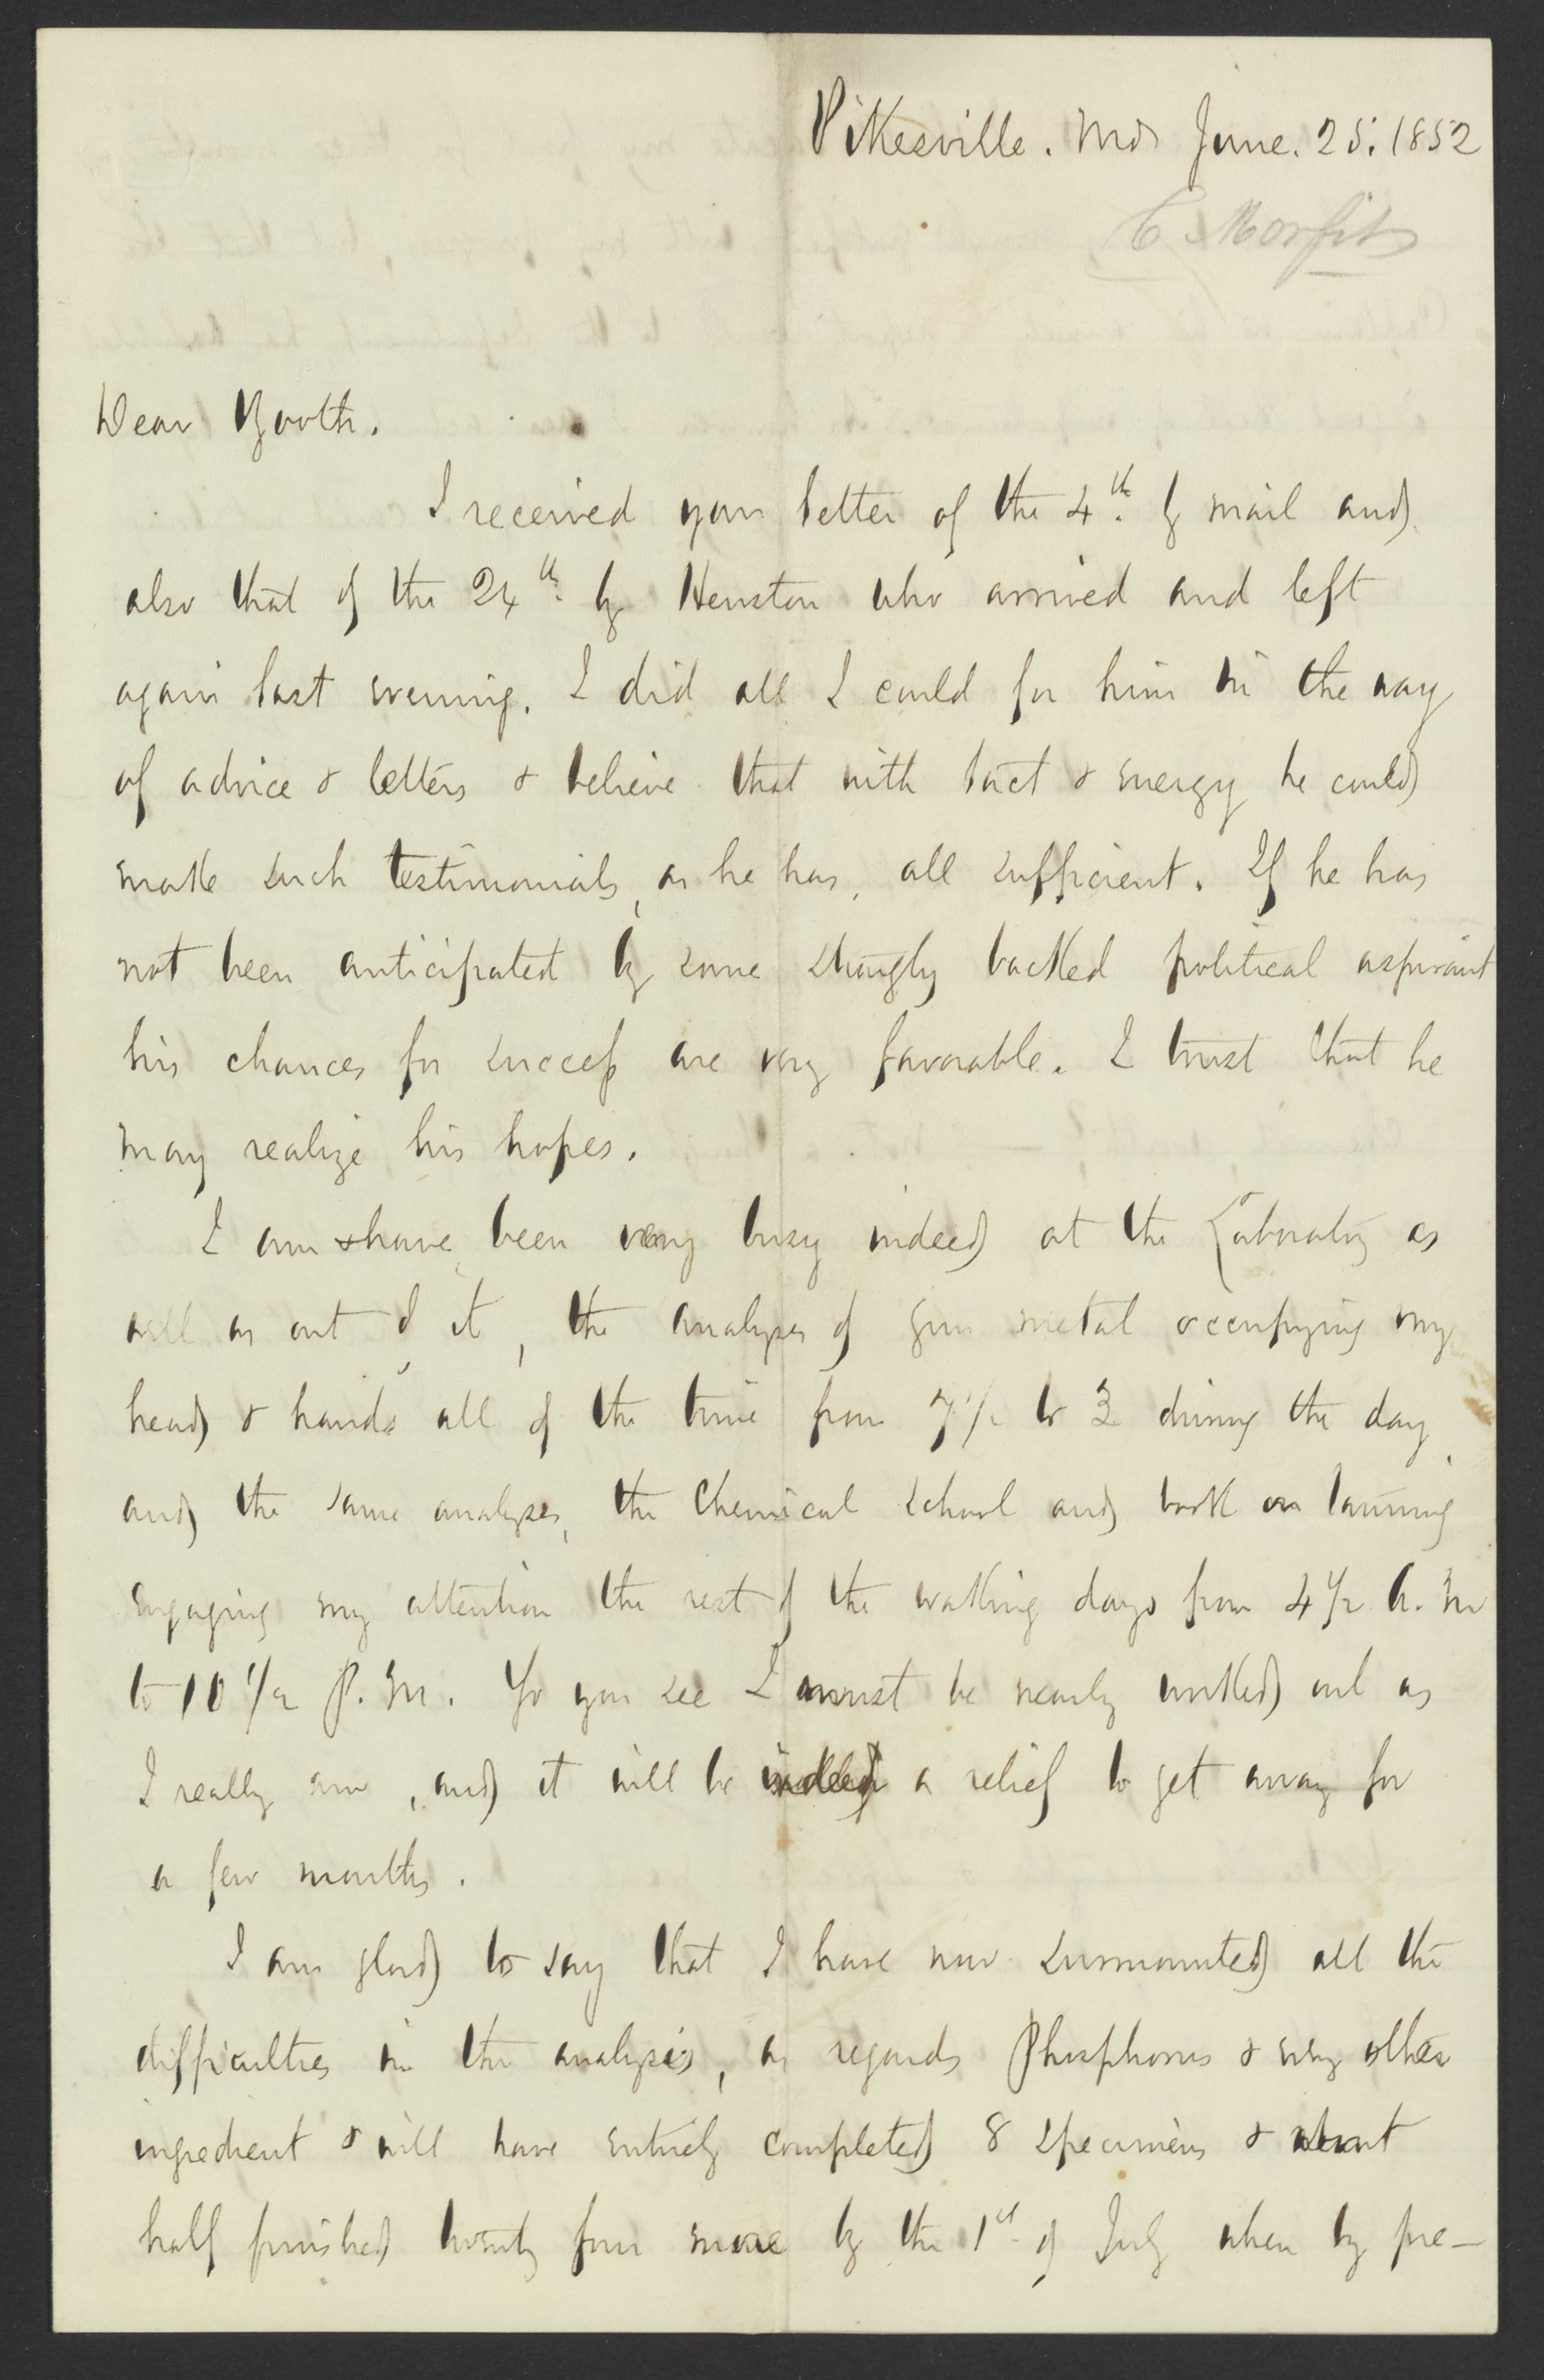 Pikesville. Md June. 25. 1852
C. Morfit
Dear Booth.
I received your letter of the 4th. by mail and
also that of the 24th. by Henston who arrived and left
again last evening. I did all I could for him in the way
of advice & letters & believe that with tact & energy he could
make such testimonials, as he has, all sufficient. If he has
not been anticipated by some strongly backed political aspirant
his chances for success are very favorable. I trust that he
may realize his hopes.
I am & have been very busy indeed at the Laboratory as
well as out of it, the analyses of gun metal occupying my
head & hands all of the time from 7 1/2 to 3 during the day,
and the same analyses, the Chemical School and book on tanning
engaging my attention the rest of the waking days from 4 1/2 A. M
to 10 1/2 P. M. So you see I must be nearly worked out as
I really am, and it will be indeed a relief to get away for
a few months.
I am glad to say that I have now surmounted all the
difficulties in the analysis, as regards Phosphorus & every other
ingredient & will have entirely completed 8 specimens & about
half finished twenty four more by the 1st of July when by pre-